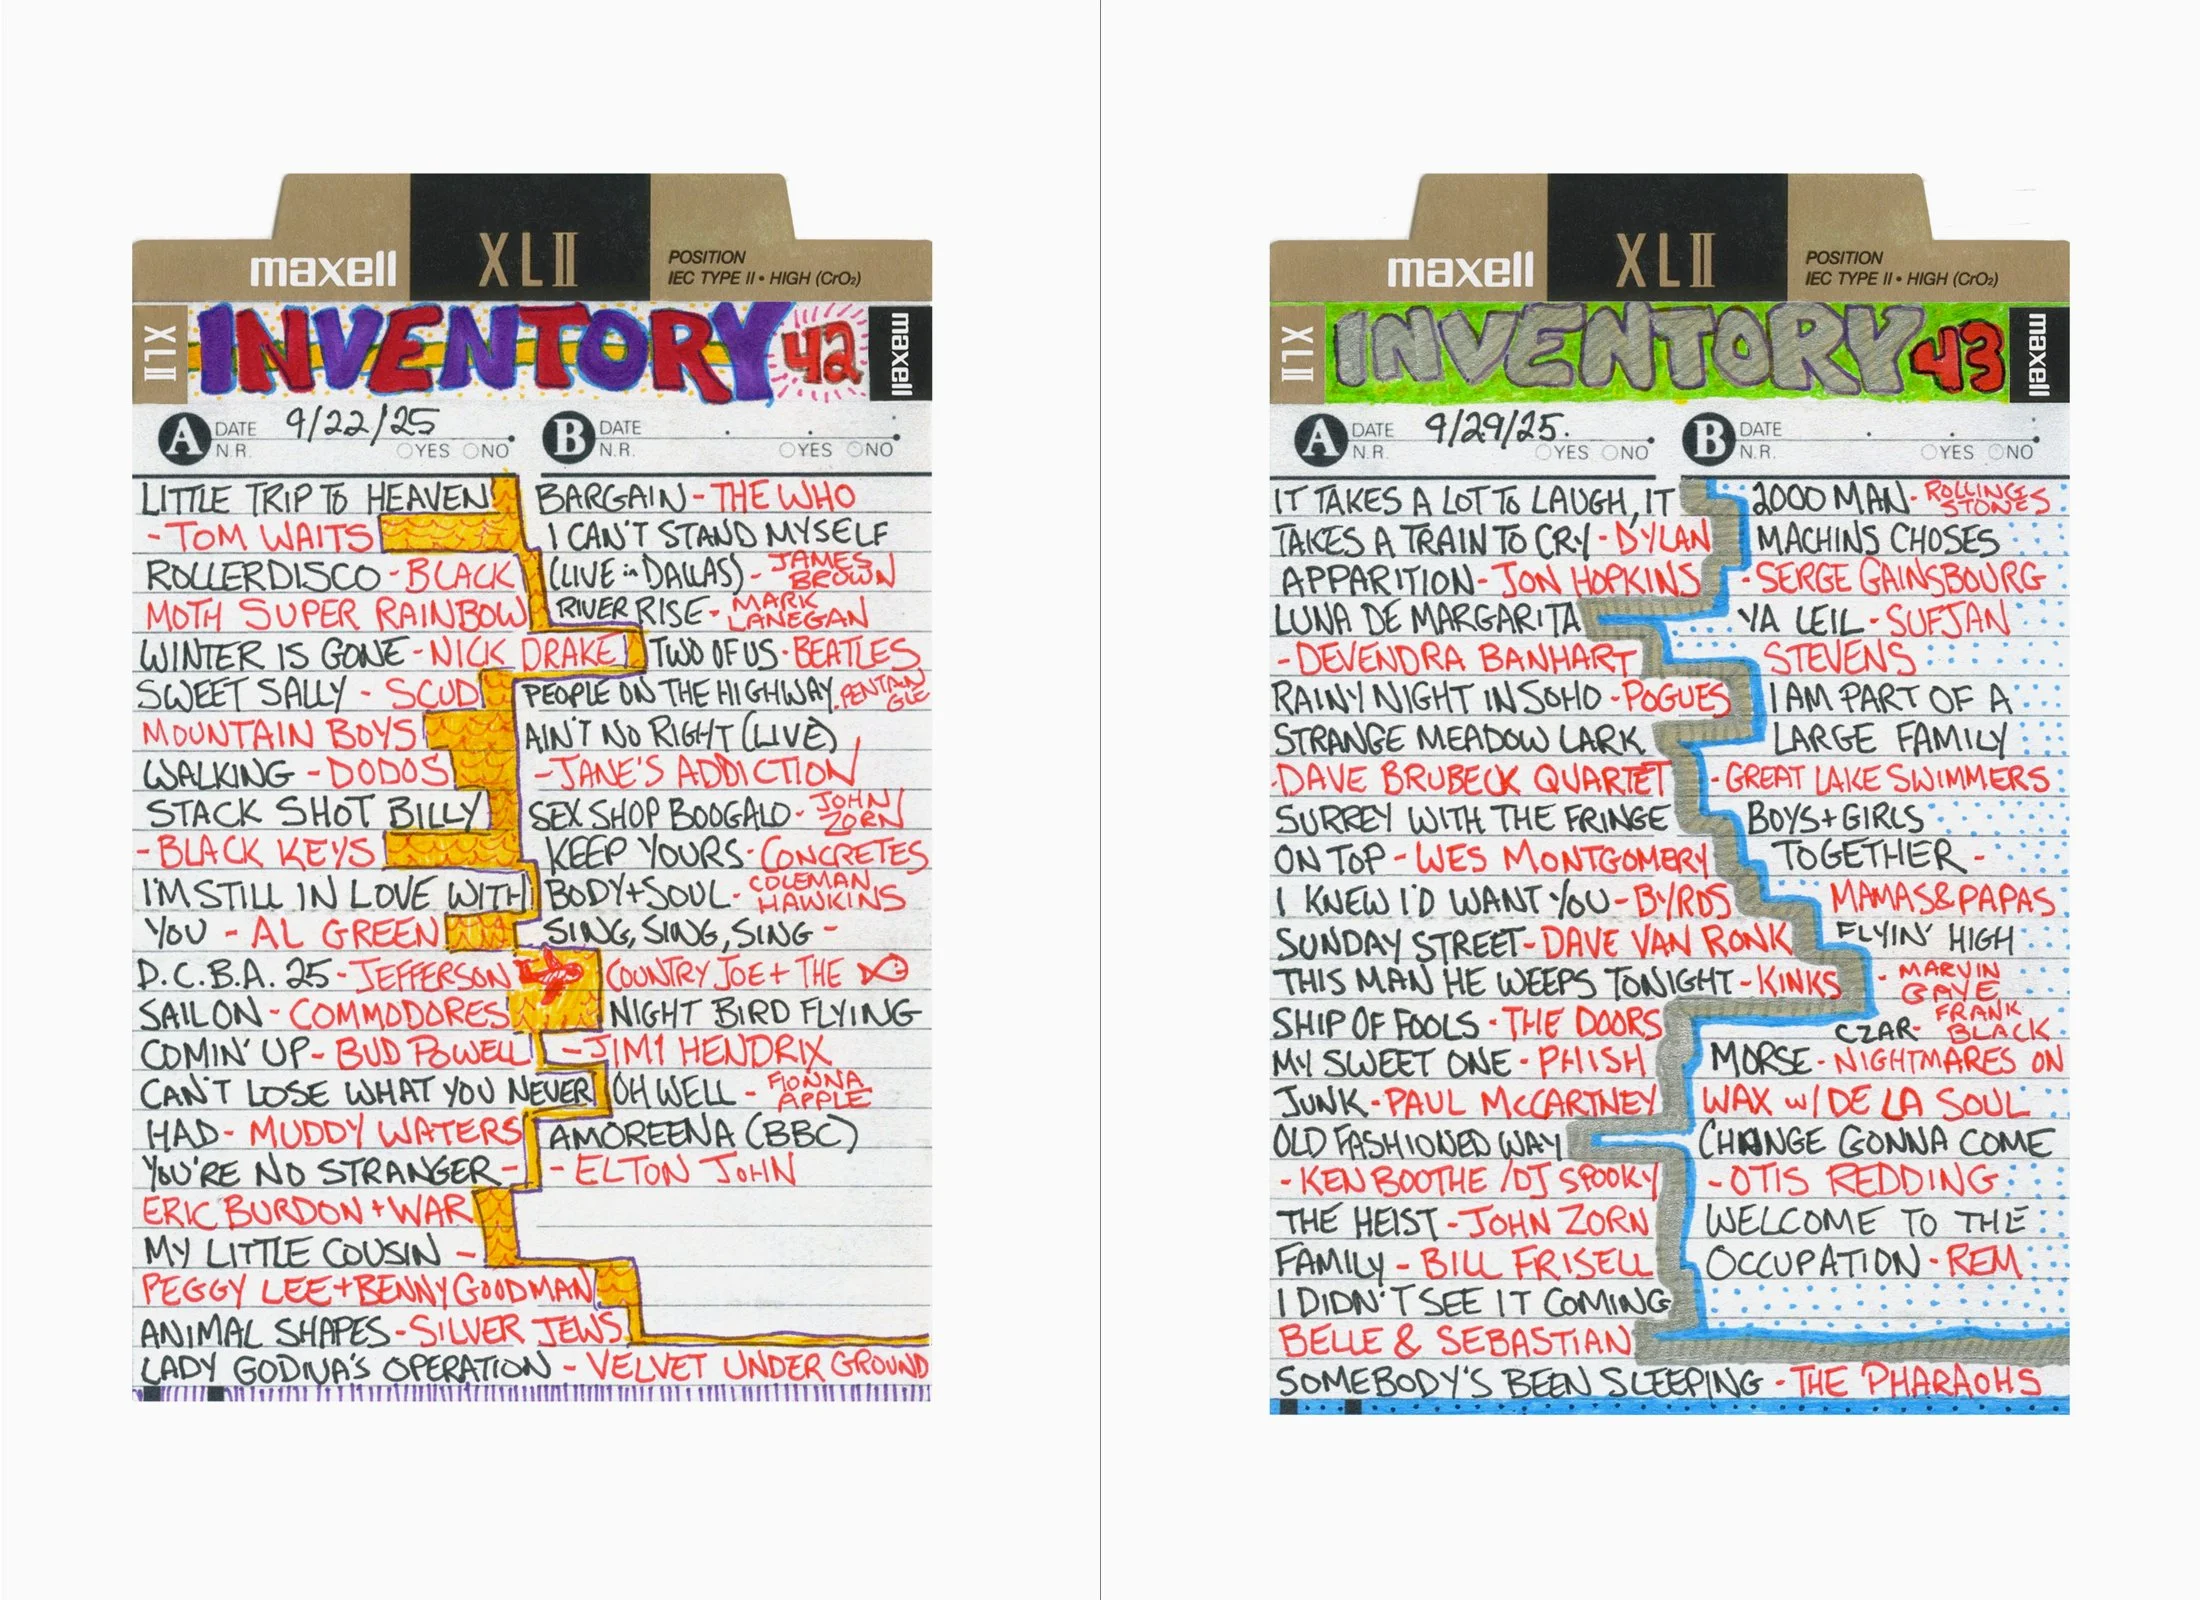 maxell
XLII
POSITION
IEC TYPE II • HIGH (CrO₂)
XLII
INVENTORY 42
maxell
A DATE 9/22/25
N.R. YES NO
B DATE
N.R. YES NO
LITTLE TRIP TO HEAVEN
- TOM WAITS
ROLLERDISCO - BLACK
MOTH SUPER RAINBOW
WINTER IS GONE - NICK DRAKE
SWEET SALLY - SCUD
MOUNTAIN BOYS
WALKING - DODOS
STACK SHOT BILLY
- BLACK KEYS
I'M STILL IN LOVE WITH
YOU - AL GREEN
D.C.B.A. 25 - JEFFERSON
SAIL ON - COMMODORES
COMIN' UP - BUD POWELL
CAN'T LOSE WHAT YOU NEVER
HAD - MUDDY WATERS
YOU'RE NO STRANGER -
ERIC BURDON + WAR
MY LITTLE COUSIN -
PEGGY LEE + BENNY GOODMAN
ANIMAL SHAPES - SILVER JEWS
LADY GODIVA'S OPERATION - VELVET UNDERGROUND
BARGAIN - THE WHO
I CAN'T STAND MYSELF
(LIVE in DALLAS) - JAMES BROWN
RIVER RISE - MARK LANEGAN
TWO OF US - BEATLES
PEOPLE ON THE HIGHWAY - PENTANGLE
AIN'T NO RIGHT (LIVE)
- JANE'S ADDICTION
SEX SHOP BOOGALO - JOHN ZORN
KEEP YOURS - CONCRETES
BODY + SOUL - COLEMAN HAWKINS
SING, SING, SING -
COUNTRY JOE + THE
NIGHT BIRD FLYING
- JIMI HENDRIX
OH WELL - FIONNA APPLE
AMOREENA (BBC)
- ELTON JOHN
maxell
XLII
POSITION
IEC TYPE II • HIGH (CrO₂)
XLII
INVENTORY 43
maxell
A DATE 9/29/25.
N.R. YES NO
B DATE
N.R. YES NO
IT TAKES A LOT TO LAUGH, IT
TAKES A TRAIN TO CRY - DYLAN
APPARITION - JON HOPKINS
LUNA DE MARGARITA
- DEVENDRA BANHART
RAINY NIGHT IN SOHO - POGUES
STRANGE MEADOW LARK
- DAVE BRUBECK QUARTET
SURREY WITH THE FRINGE
ON TOP - WES MONTGOMERY
I KNEW I'D WANT YOU - BYRDS
SUNDAY STREET - DAVE VAN RONK
THIS MAN HE WEEPS TONIGHT - KINKS
SHIP OF FOOLS - THE DOORS
MY SWEET ONE - PHISH
JUNK - PAUL McCARTNEY
OLD FASHIONED WAY
- KEN BOOTHE / DJ SPOOKY
THE HEIST - JOHN ZORN
FAMILY - BILL FRISELL
I DIDN'T SEE IT COMING
BELLE & SEBASTIAN
SOMEBODY'S BEEN SLEEPING - THE PHARAOHS
2000 MAN - ROLLING STONES
MACHINS CHOSES
- SERGE GAINSBOURG
YA LEIL - SUFJAN
STEVENS
I AM PART OF A
LARGE FAMILY
- GREAT LAKE SWIMMERS
BOYS + GIRLS
TOGETHER -
MAMAS & PAPAS
FLYIN' HIGH
- MARVIN GAYE
CZAR - FRANK BLACK
MORSE - NIGHTMARES ON
WAX w/ DE LA SOUL
CHANGE GONNA COME
- OTIS REDDING
WELCOME TO THE
OCCUPATION - REM